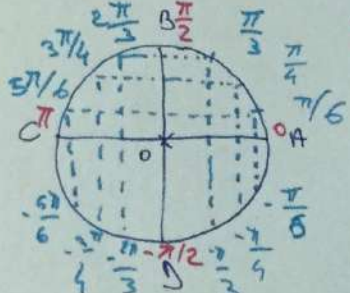 2π/3 B π/2 π/3
3π/4 π/4
5π/6 π/6
C π O 0 A
-5π/6 -π/6
-3π/4 -2π/3 -π/2 -π/3 -π/4
D